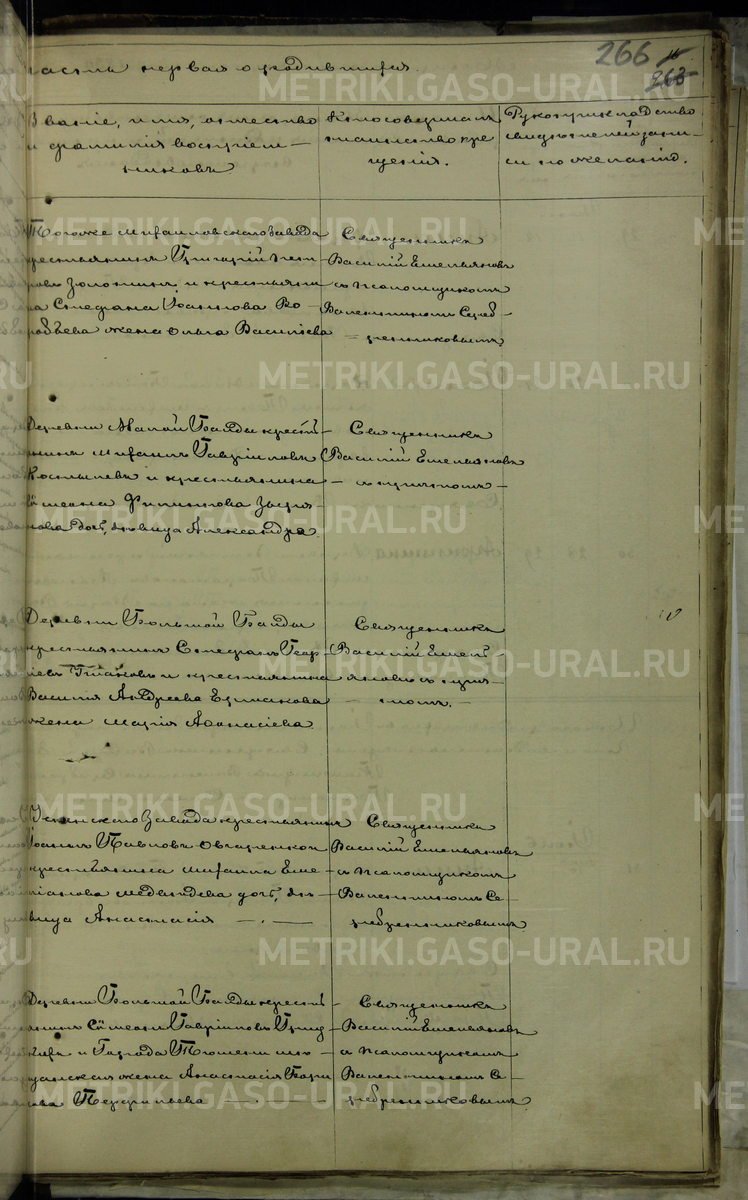 266
263
часть первая о родившихся.
METRIKI.GASO-URAL.RU
Званіе, имя, отчество
и фамилія воспріем-
никовъ
Кто совершалъ
таинство кре-
щенія.
Рукоприкладство
свидѣтелей запи-
си по желанію.
Тогоже Михаиловскаго Завода
крестьянинъ
Золотинъ и крестьяни-
на Стефана Іоаннова Во-
робьева жена Ольга Васильева
Священникъ
Василій Емельяновъ
съ псаломщикомъ
Валентиномъ Сереб-
ренниковымъ
Деревни Малой крестья-
нинъ Михаилъ Гавріиловъ
и крестьянина
Симеона Филиппова
дочь, дѣвица Александра.
Священникъ
Василій Емельяновъ
съ причтомъ
Деревни Большой
крестьянинъ Стефанъ Геор-
гіевъ и крестьянина
Василія Андреева Ермакова
жена Марія Аѳанасіева.
Священникъ
Василій Емель-
яновъ съ прич-
томъ.
завода крестьянинъ
Іоаннъ Павловъ
крестьянина Михаила Еме-
ліанова Медвѣдева дочь, дѣ-
вица Анастасія
Священникъ
Василій Емельяновъ
съ псаломщикомъ
Валентиномъ Се-
ребренниковымъ
Деревни Большой крестья-
нинъ Симеонъ Гавріиловъ
и Города Тюмени мѣ-
щанская жена Анастасія
Перфильева
Священникъ
Василій Емельяновъ
съ псаломщикомъ
Валентиномъ Се-
ребренниковымъ